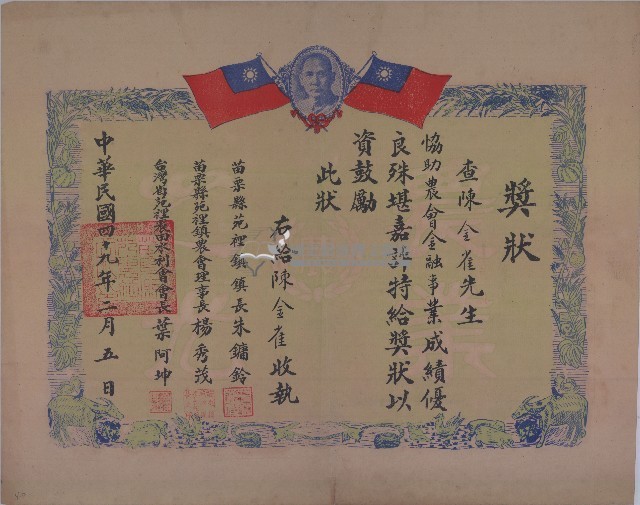 獎狀
查陳金雀先生
協助農會金融事業成績優
良殊堪嘉許特給獎狀以
資鼓勵
此狀
右給陳金雀收執
苗栗縣苑裡鎮鎮長朱鏞鈴
苗栗縣苑裡鎮農會理事長楊秀茂
台灣省苑裡農田水利會會長葉阿坤
中華民國四十九年二月五日